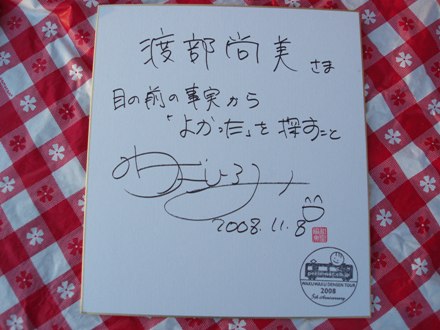 渡部尚美さま
目の前の事実から
「よかった」を探すこと
2008.11.8
WAKU WAKU DENSEN TOUR
2008
5th Anniversary